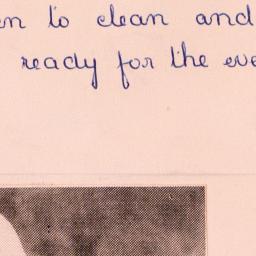 to clean and
ready for the